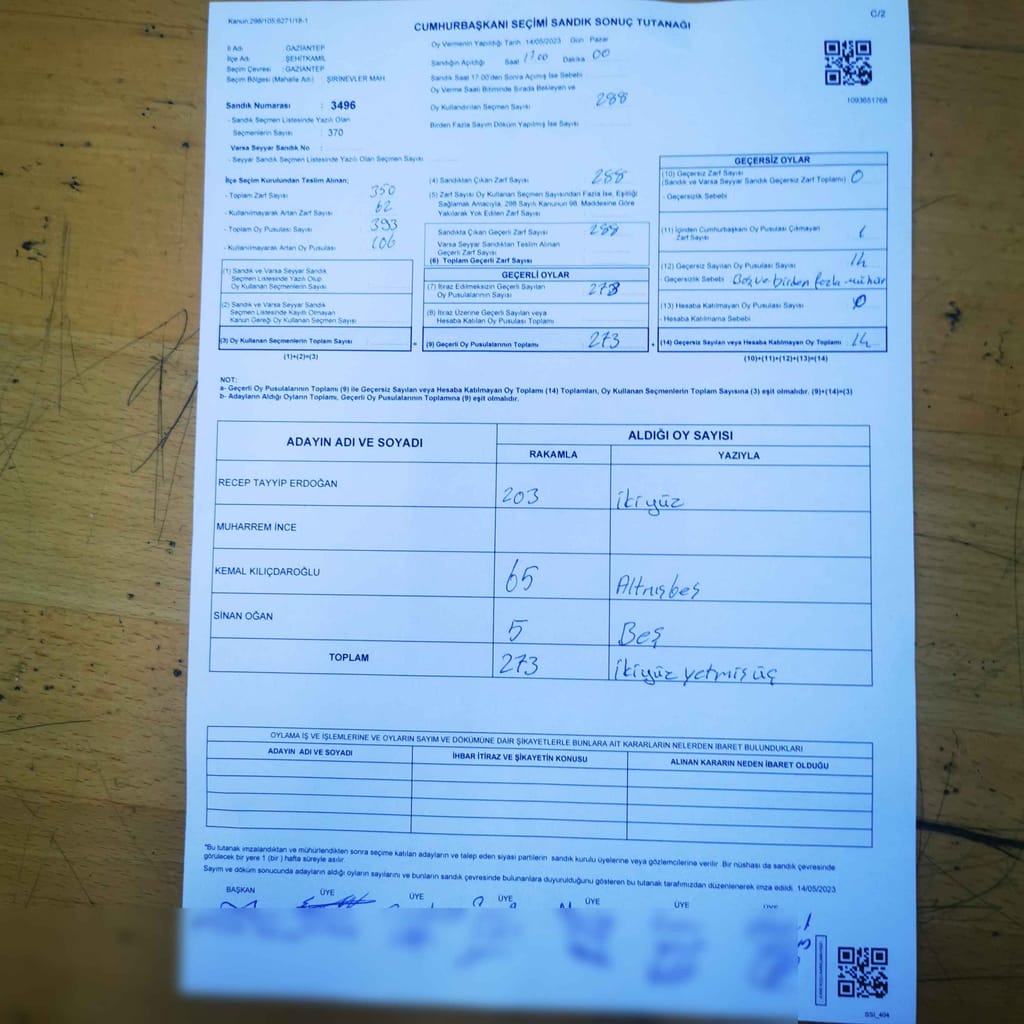 Kanun:298/105;6271/18-1
CUMHURBAŞKANI SEÇİMİ SANDIK SONUÇ TUTANAĞI
C/2
İl Adı : GAZİANTEP
İlçe Adı : ŞEHİTKAMİL
Seçim Çevresi : GAZİANTEP
Seçim Bölgesi (Mahalle Adı) : ŞİRİNEVLER MAH.
Sandık Numarası : 3496
- Sandık Seçmen Listesinde Yazılı Olan
Seçmenlerin Sayısı : 370
Varsa Seyyar Sandık No :
- Seyyar Sandık Seçmen Listesinde Yazılı Olan Seçmen Sayısı
Oy Vermenin Yapıldığı Tarih 14/05/2023 Gün Pazar
Sandığın Açıldığı Saat 17 00 Dakika 00
Sandık Saat 17:00'den Sonra Açılmış İse Sebebi
Oy Verme Saati Bitiminde Sırada Bekleyen ve
Oy Kullandırılan Seçmen Sayısı 288
Birden Fazla Sayım Döküm Yapılmış İse Sayısı
1093651768
İlçe Seçim Kurulundan Teslim Alınan;
- Toplam Zarf Sayısı 350
- Kullanılmayarak Artan Zarf Sayısı 62
- Toplam Oy Pusulası Sayısı 393
- Kullanılmayarak Artan Oy Pusulası 106
(1) Sandık ve Varsa Seyyar Sandık
Seçmen Listesinde Yazılı Olup
Oy Kullanan Seçmen Sayısı
(2) Sandık ve Varsa Seyyar Sandık
Seçmen Listesinde Kayıtlı Olmayan
Kanun Gereği Oy Kullanan Seçmen Sayısı
(3) Oy Kullanan Seçmenlerin Toplam Sayısı =
(1)+(2)=(3)
(4) Sandıktan Çıkan Zarf Sayısı 288
(5) Zarf Sayısı Oy Kullanan Seçmen Sayısından Fazla İse, Eşitliği
Sağlamak Amacıyla, 298 Sayılı Kanunun 98. Maddesine Göre
Yakılarak Yok Edilen Zarf Sayısı
Sandıkta Çıkan Geçerli Zarf Sayısı 288
Varsa Seyyar Sandıktan Teslim Alınan
Geçerli Zarf Sayısı
(6) Toplam Geçerli Zarf Sayısı
GEÇERLİ OYLAR
(7) İtiraz Edilmeksizin Geçerli Sayılan
Oy Pusulalarının Sayısı 273
(8) İtiraz Üzerine Geçerli Sayılan veya
Hesaba Katılan Oy Pusulası Toplamı
(9) Geçerli Oy Pusulalarının Toplamı 273 +
GEÇERSİZ OYLAR
(10) Geçersiz Zarf Sayısı
(Sandık ve Varsa Seyyar Sandık Geçersiz Zarf Toplamı) 0
- Geçersizlik Sebebi
(11) İçinden Cumhurbaşkanı Oy Pusulası Çıkmayan
Zarf Sayısı 1
(12) Geçersiz Sayılan Oy Pusulası Sayısı 14
- Geçersizlik Sebebi Boş ve birden fazla mühür
(13) Hesaba Katılmayan Oy Pusulası Sayısı 0
- Hesaba Katılmama Sebebi
(14) Geçersiz Sayılan veya Hesaba Katılmayan Oy Toplamı 14
(10)+(11)+(12)+(13)=(14)
NOT:
a- Geçerli Oy Pusulalarının Toplamı (9) ile Geçersiz Sayılan veya Hesaba Katılmayan Oy Toplamı (14) Toplamları, Oy Kullanan Seçmenlerin Toplam Sayısına (3) eşit olmalıdır. (9)+(14)=(3)
b- Adayların Aldığı Oyların Toplamı, Geçerli Oy Pusulalarının Toplamına (9) eşit olmalıdır.
ADAYIN ADI VE SOYADI
ALDIĞI OY SAYISI
RAKAMLA YAZIYLA
RECEP TAYYİP ERDOĞAN 203 ikiyüz
MUHARREM İNCE
KEMAL KILIÇDAROĞLU 65 Altmışbeş
SİNAN OĞAN 5 Beş
TOPLAM 273 ikiyüz yetmiş üç
OYLAMA İŞ VE İŞLEMLERİNE VE OYLARIN SAYIM VE DÖKÜMÜNE DAİR ŞİKAYETLERLE BUNLARA AİT KARARLARIN NELERDEN İBARET BULUNDUKLARI
ADAYIN ADI VE SOYADI İHBAR İTİRAZ VE ŞİKAYETİN KONUSU ALINAN KARARIN NEDEN İBARET OLDUĞU
"Bu tutanak imzalandıktan ve mühürlendikten sonra seçime katılan adayların ve talep eden siyasi partilerin sandık kurulu üyelerine veya gözlemcilerine verilir. Bir nüshası da sandık çevresinde
görülecek bir yere 1 (bir) hafta süreyle asılır.
Sayım ve döküm sonucunda adayların aldığı oyların sayılarını ve bunların sandık çevresinde bulunanlara duyurulduğunu gösteren bu tutanak tarafımızdan düzenlenerek imza edildi. 14/05/2023
BAŞKAN ÜYE ÜYE ÜYE ÜYE ÜYE ÜYE
SSİ_404